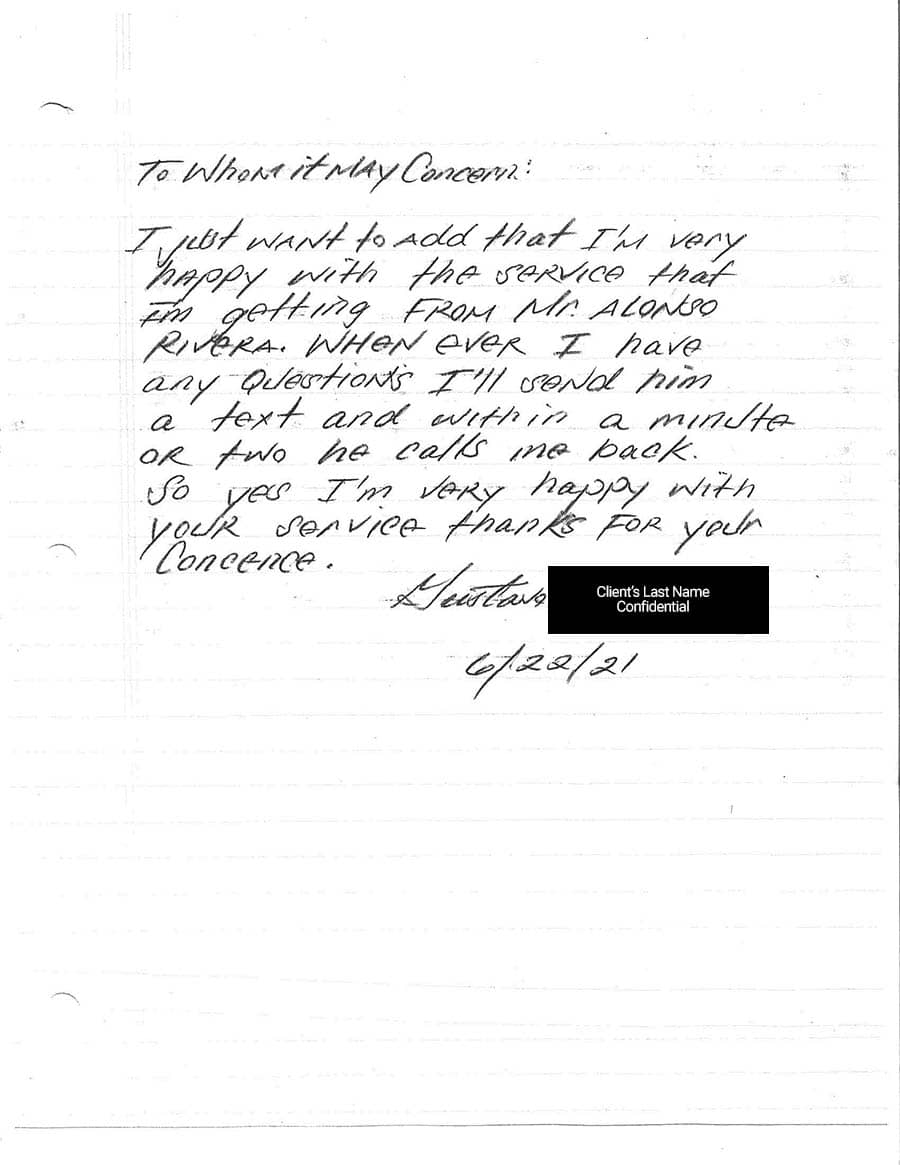 To Whom it May Concern:
I just want to add that I'm very
happy with the service that
I'm getting FROM Mr. ALONSO
RIVERA. WHEN EVER I have
any Questions I'll send him
a text and within a minute
OR two he calls me back.
So yes I'm very happy with
your service thanks FOR your
Concence.
Gustavo
Client's Last Name
Confidential
6/22/21